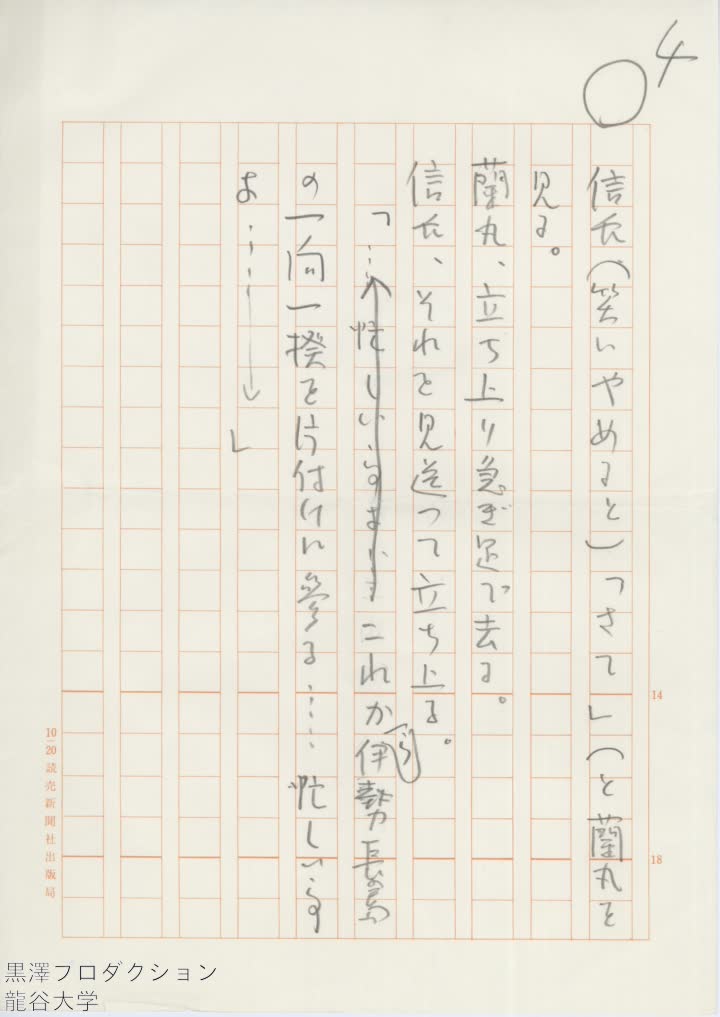 4
○
信長(笑いやめると)「さて」(と蘭丸を
見る。
蘭丸、立ち上り急ぎ足で去る。
信長、それを見送って立ち上る。
「…忙しいのう
これから伊勢長島
の一向一揆を片付けに参る……忙しいのう
お……」
14
18
10 20 読売新聞社出版局
黒澤プロダクション
龍谷大学